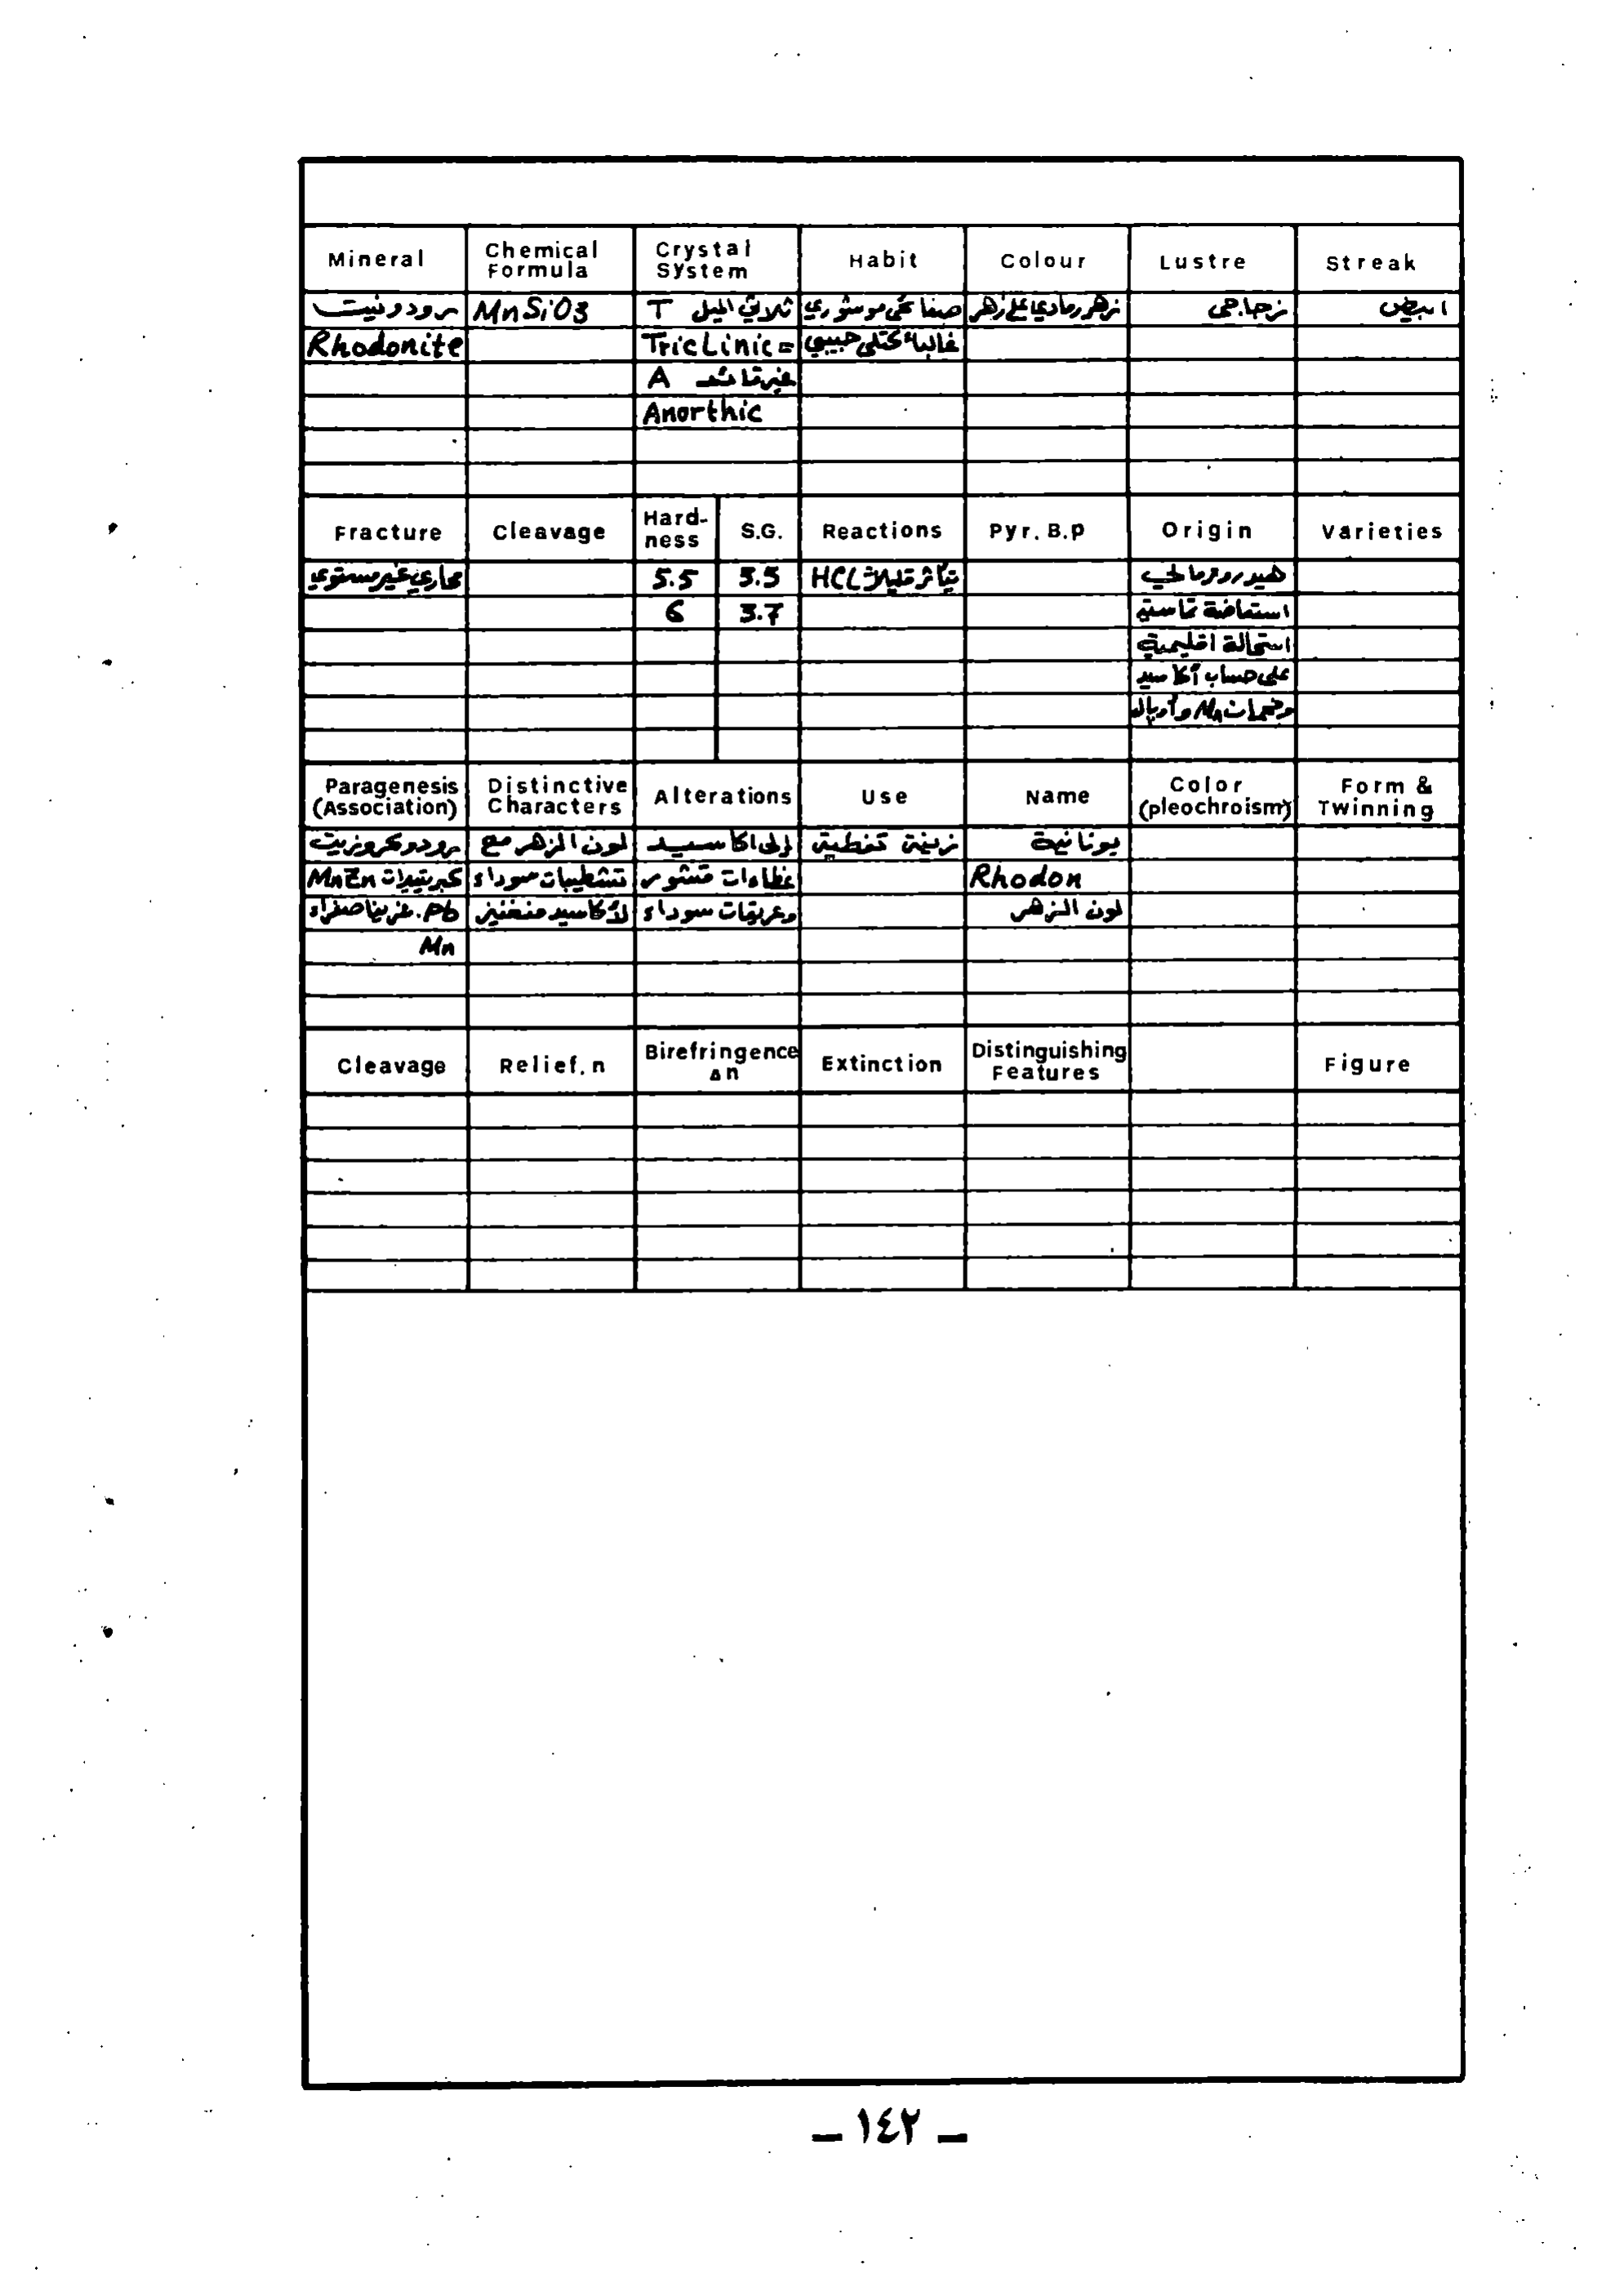 Mineral Chemical Formula Crystal System Habit Colour Lustre Streak
رودونيت MnSiO3 ثلاثي الميل T صفائحي موشوري زهر رمادي على زهر زجاجي ابيض
Rhodonite Triclinic = غالباً كتلي حبيبي
غير قائم A
Anorthic
Fracture Cleavage Hardness S.G. Reactions Pyr. B.p Origin Varieties
محاري غير مستوي 5.5 3.5 يتأثر قليلاً بـ HCL هيدروترمالي
6 3.7 استعاضة تماسية
استحالة اقليمية
على حساب أكاسيد
وفحمات Mn وأوبال
Paragenesis (Association) Distinctive Characters Alterations Use Name Color (pleochroism) Form & Twinning
رودوكروزيت لون الزهر مع إلى اكاسيد زينة تغطية يونانية
كبريتيدات MnZn تشطيبات سوداء غطاءات قشور Rhodon
Pb. غرينا صفراء لأكاسيد منغنيز وعريقات سوداء لون الزهر
Mn
Cleavage Relief. n Birefringence Δn Extinction Distinguishing Features Figure
– ١٤٢ –